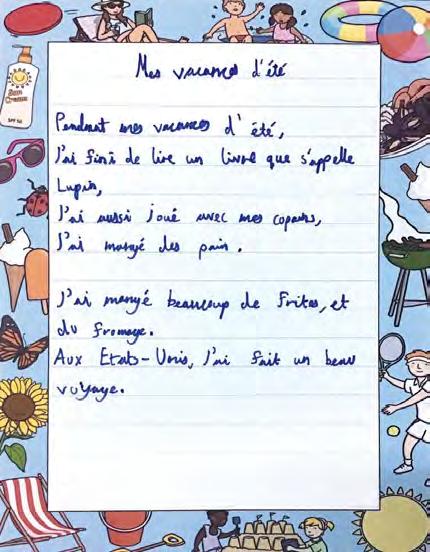 Mes vacances d'été
Pendant mes vacances d'été,
J'ai fini de lire un livre que s'appelle
Lupin,
J'ai aussi joué avec mes copains,
J'ai mangé des pain.
J'ai mangé beaucoup de frites, et
du fromage.
Aux Etats-Unis, J'ai fait un beau
voyage.
Sun
Cream
SPF 50